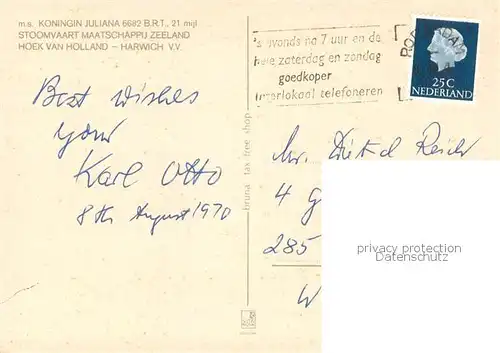 m.s. KONINGIN JULIANA 6682 B.R.T., 21 mijl
STOOMVAART MAATSCHAPPIJ ZEELAND
HOEK VAN HOLLAND – HARWICH V.V.
's avonds na 7 uur en de
hele zaterdag en zondag
goedkoper
interlokaal telefoneren
25C
NEDERLAND
Best wishes
your
Karl Otto
8th August 1970
bruna tax free shop
Mr. Dietrich
4 G
285
W
privacy protection
Datenschutz